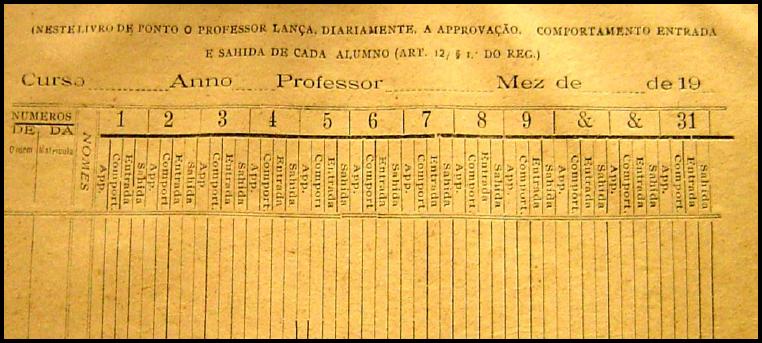 (NESTE LIVRO DE PONTO O PROFESSOR LANÇA, DIARIAMENTE, A APPROVAÇÃO, COMPORTAMENTO ENTRADA
E SAHIDA DE CADA ALUMNO (ART. 12, § 1.º DO REG.)
Curso Anno Professor Mez de de 19
NUMEROS 1 2 3 4 5 6 7 8 9 & & 31
DE DA
Ordem Matricula NOMES App. Comport. Entrada Sahida App. Comport. Entrada Sahida App. Comport. Entrada Sahida App. Comport. Entrada Sahida App. Comport. Entrada Sahida App. Comport. Entrada Sahida App. Comport. Entrada Sahida App. Comport. Entrada Sahida App. Comport. Entrada Sahida App. Comport. Entrada Sahida App. Comport. Entrada Sahida App. Comport. Entrada Sahida